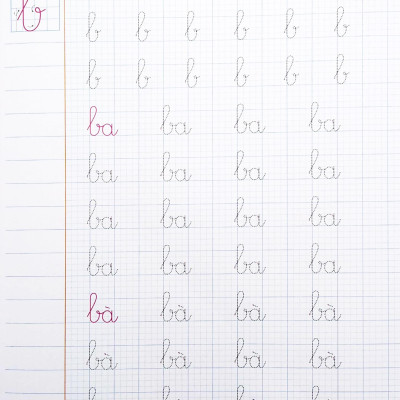 b b b b b b b
b b b b b b
ba ba ba ba
ba ba ba ba
ba ba ba ba
ba ba ba ba
bà bà bà bà
bà bà bà bà